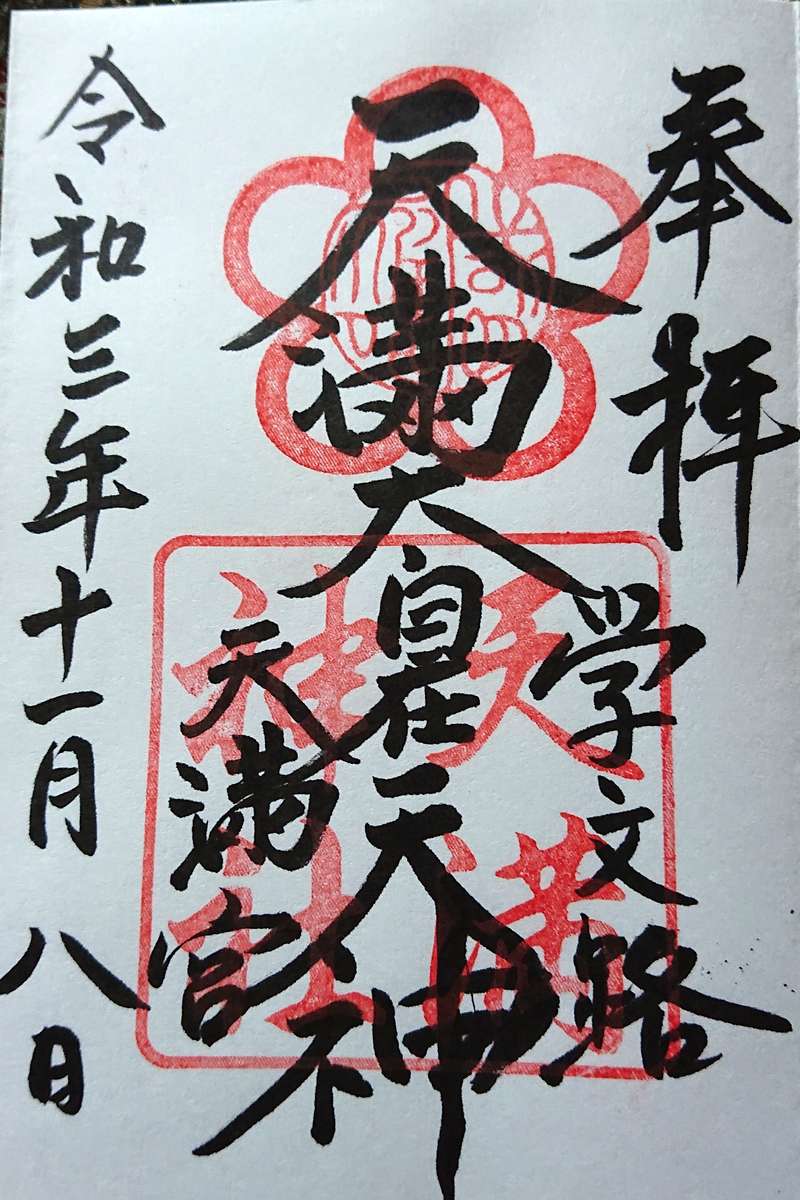 奉拝
学文路
天満大自在天神
天満宮
令和三年十一月八日
天満
神社